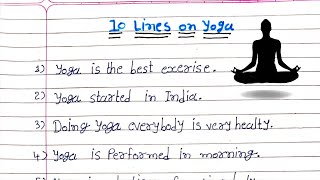 10 Lines on Yoga
1) Yoga is the best exerise.
2) Yoga started in India.
3) Doing Yoga everybody is very healty.
4) Yoga is Performed in morning.